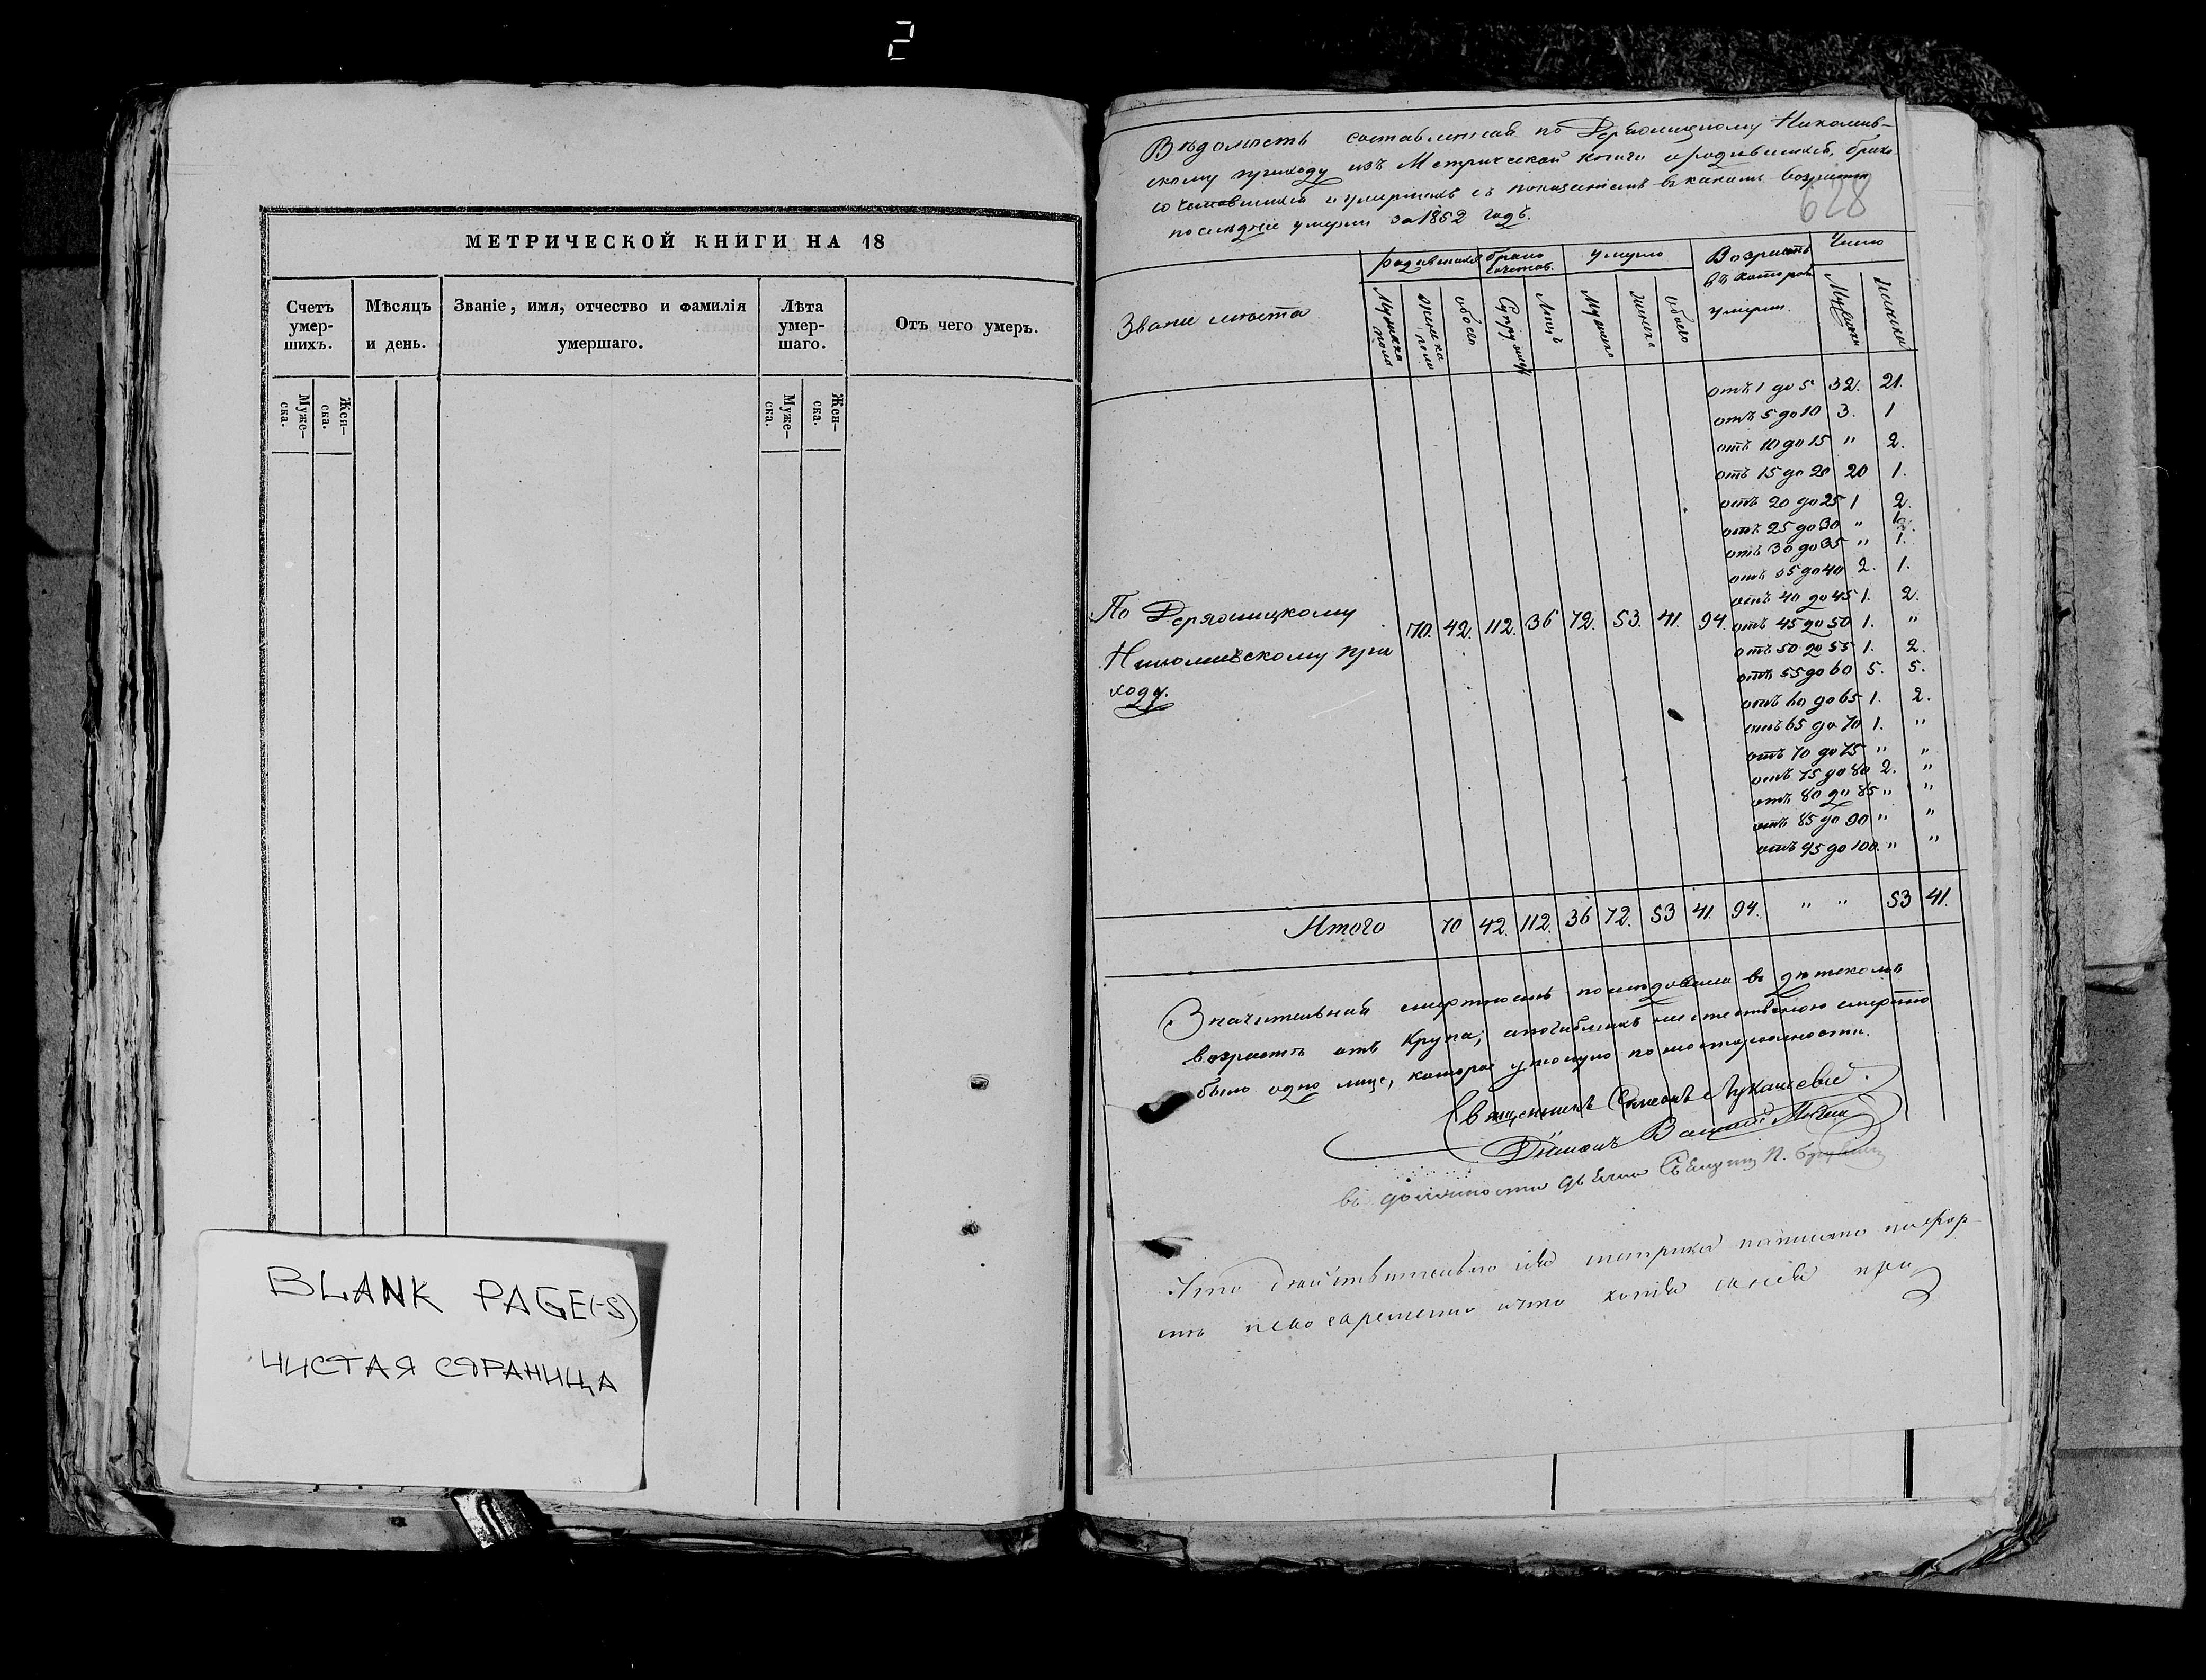 2
МЕТРИЧЕСКОЙ КНИГИ НА 18
Счетъ умер-шихъ.
Мѣсяцъ и день.
Званіе, имя, отчество и фамилія умершаго.
Лѣта умер-шаго.
Отъ чего умеръ.
Муже-ска.
Жен-ска.
Муже-ска.
Жен-ска.
BLANK PAGE(-S)
ЧИСТАЯ СТРАНИЦА
Вѣдомость составленная по Николаев-
скому приходу изъ Метрической книги о родившихся, брако-
сочетавшихся и умершихъ съ показаніемъ въ какомъ возрасте
последніе умерли за 1852 годъ.
628
Звание места
родившихся
брако сочетав.
умерло
Возрастъ въ котором умерли.
Число
Мужеска пола
женска пола
обоего
Супружеств
Лицъ
Мужеска
женска
обоего
Мужеска
женска
отъ 1 до 5 32. 21.
отъ 5 до 10 3. 1
отъ 10 до 15 " 2.
отъ 15 до 20 20 1.
отъ 20 до 25 1 2.
отъ 25 до 30 "
отъ 30 до 35 " 1.
отъ 35 до 40 2. 1.
отъ 40 до 45 1. 2.
По
Николаевскому при
ходу.
70. 42. 112. 36 72. 53. 41. 94. отъ 45 до 50 1. "
отъ 50 до 55 1. 2.
отъ 55 до 60 5. 5.
отъ 60 до 65 1. 2.
отъ 65 до 70 1. "
отъ 70 до 75 " "
отъ 75 до 80 2. "
отъ 80 до 85 " "
отъ 85 до 90 " "
отъ 95 до 100. " "
Итого 70 42. 112. 36 72. 53 41. 94. " " 53 41.
Значительная смертность последовала въ детскомъ
возрасте отъ Крупа; а погибшихъ неестественою смертию
было одно лице, которое утонуло по неосторожности.
Священникъ Симеонъ Лукашевич.
Діаконъ
въ должности дьячка
Что действительно сия метрика написана по фор-
ме и своевременно и что копия с нея при